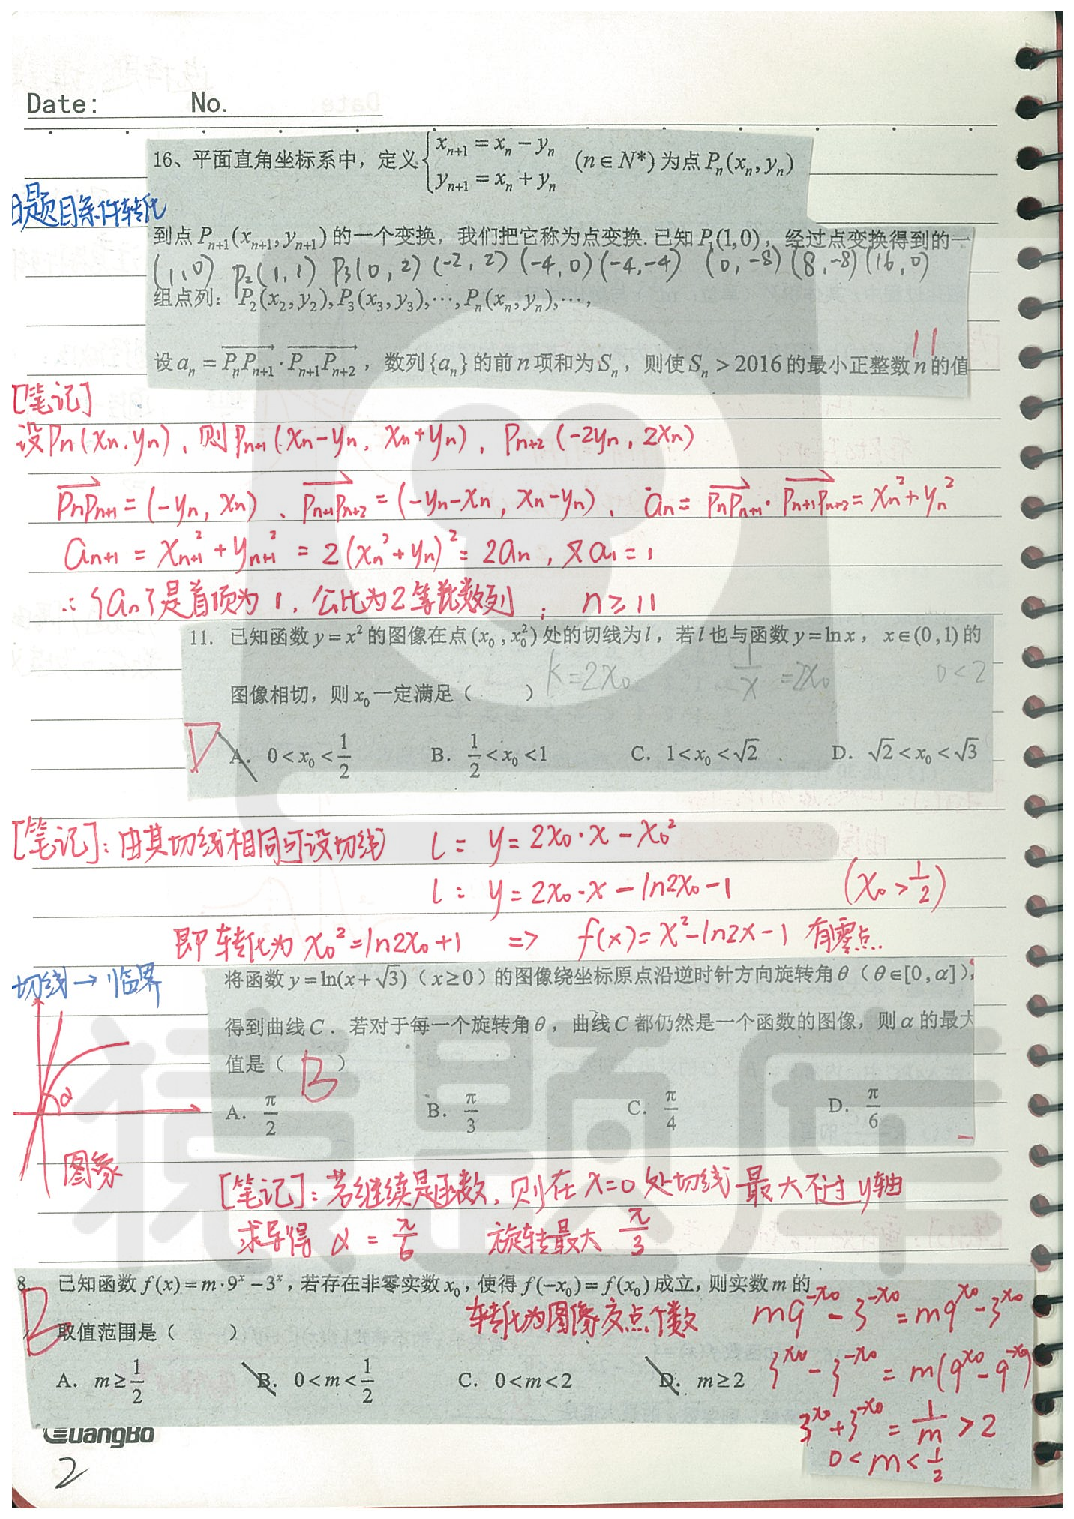 Date: No.
16、平面直角坐标系中，定义{x_{n+1}=x_n-y_n
y_{n+1}=x_n+y_n (n∈N*)为点P_n(x_n,y_n)
日题目条件转化
到点P_{n+1}(x_{n+1},y_{n+1})的一个变换，我们把它称为点变换.已知P_1(1,0)，经过点变换得到的一
(1,0) P_2(1,1) P_3(0,2) (-2,2) (-4,0) (-4,-4) (0,-8) (8,-8) (16,0)
组点列：P_2(x_2,y_2),P_3(x_3,y_3),…,P_n(x_n,y_n),…,
11
设a_n=\overrightarrow{P_nP_{n+1}}·\overrightarrow{P_{n+1}P_{n+2}}，数列{a_n}的前n项和为S_n，则使S_n>2016的最小正整数n的值
[笔记]
设P_n(x_n,y_n)，则P_{n+1}(x_n-y_n, x_n+y_n)，P_{n+2}(-2y_n, 2x_n)
\overrightarrow{P_nP_{n+1}}=(-y_n, x_n)、\overrightarrow{P_{n+1}P_{n+2}}=(-y_n-x_n, x_n-y_n)，a_n=\overrightarrow{P_nP_{n+1}}·\overrightarrow{P_{n+1}P_{n+2}}=x_n²+y_n²
a_{n+1}=x_{n+1}²+y_{n+1}²=2(x_n²+y_n)²=2a_n，又a_1=1
∴{a_n}是首项为1，公比为2等比数列； n≥11
11. 已知函数y=x²的图像在点(x_0,x_0²)处的切线为l，若l也与函数y=lnx，x∈(0,1)的
k=2x_0 1/x=2x_0 0<2
图像相切，则x_0一定满足（ ）
D
A. 0<x_0<1/2 B. 1/2<x_0<1 C. 1<x_0<√2 D. √2<x_0<√3
[笔记]：由其切线相同可设切线 l: y=2x_0·x-x_0²
l: y=2x_0·x-ln2x_0-1 (x_0>1/2)
即转化为x_0²=ln2x_0+1 => f(x)=x²-ln2x-1 有零点
切线→临界
将函数y=ln(x+√3)（x≥0）的图像绕坐标原点沿逆时针方向旋转角θ（θ∈[0,α]），
得到曲线C．若对于每一个旋转角θ，曲线C都仍然是一个函数的图像，则α的最大
值是（ B ）
α
A. π/2 B. π/3 C. π/4 D. π/6
图象
[笔记]：若继续是函数，则在x=0处切线最大不过y轴
求导得 α=π/6 旋转最大 π/3
8. 已知函数f(x)=m·9^x-3^x，若存在非零实数x_0，使得f(-x_0)=f(x_0)成立，则实数m的
B
取值范围是（ ）
转化为图像交点个数
m9^{-x_0}-3^{-x_0}=m9^{x_0}-3^{x_0}
A. m≥1/2 B. 0<m<1/2 C. 0<m<2 D. m≥2
3^{x_0}-3^{-x_0}=m(9^{x_0}-9^{-x_0})
3^{x_0}+3^{-x_0}=1/m>2
0<m<1/2
GuangBo
2
猿题库